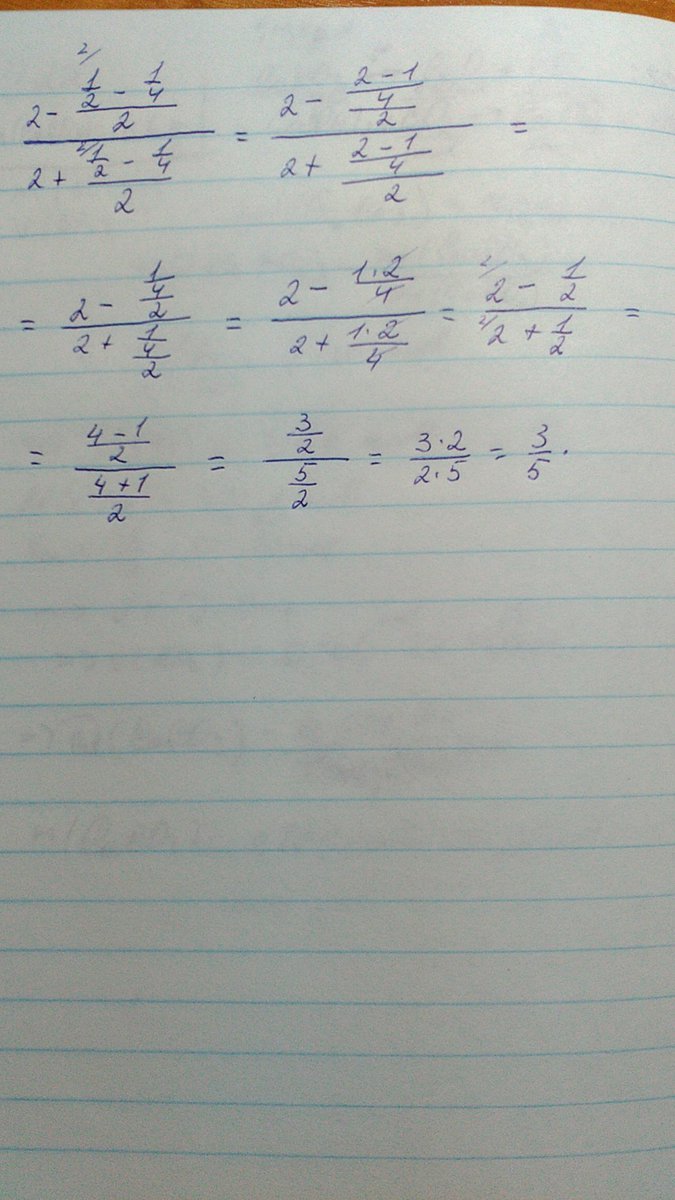 \frac{2 - \frac{\overset{2/}{\frac{1}{2}} - \frac{1}{4}}{2}}{2 + \frac{\overset{2/}{\frac{1}{2}} - \frac{1}{4}}{2}} = \frac{2 - \frac{\frac{2-1}{4}}{2}}{2 + \frac{\frac{2-1}{4}}{2}} =
= \frac{2 - \frac{\frac{1}{4}}{2}}{2 + \frac{\frac{1}{4}}{2}} = \frac{2 - \frac{1 \cdot 2}{4}}{2 + \frac{1 \cdot 2}{4}} = \frac{\overset{2/}{2} - \frac{1}{2}}{\overset{2/}{2} + \frac{1}{2}} =
= \frac{\frac{4-1}{2}}{\frac{4+1}{2}} = \frac{\frac{3}{2}}{\frac{5}{2}} = \frac{3 \cdot 2}{2 \cdot 5} = \frac{3}{5}.